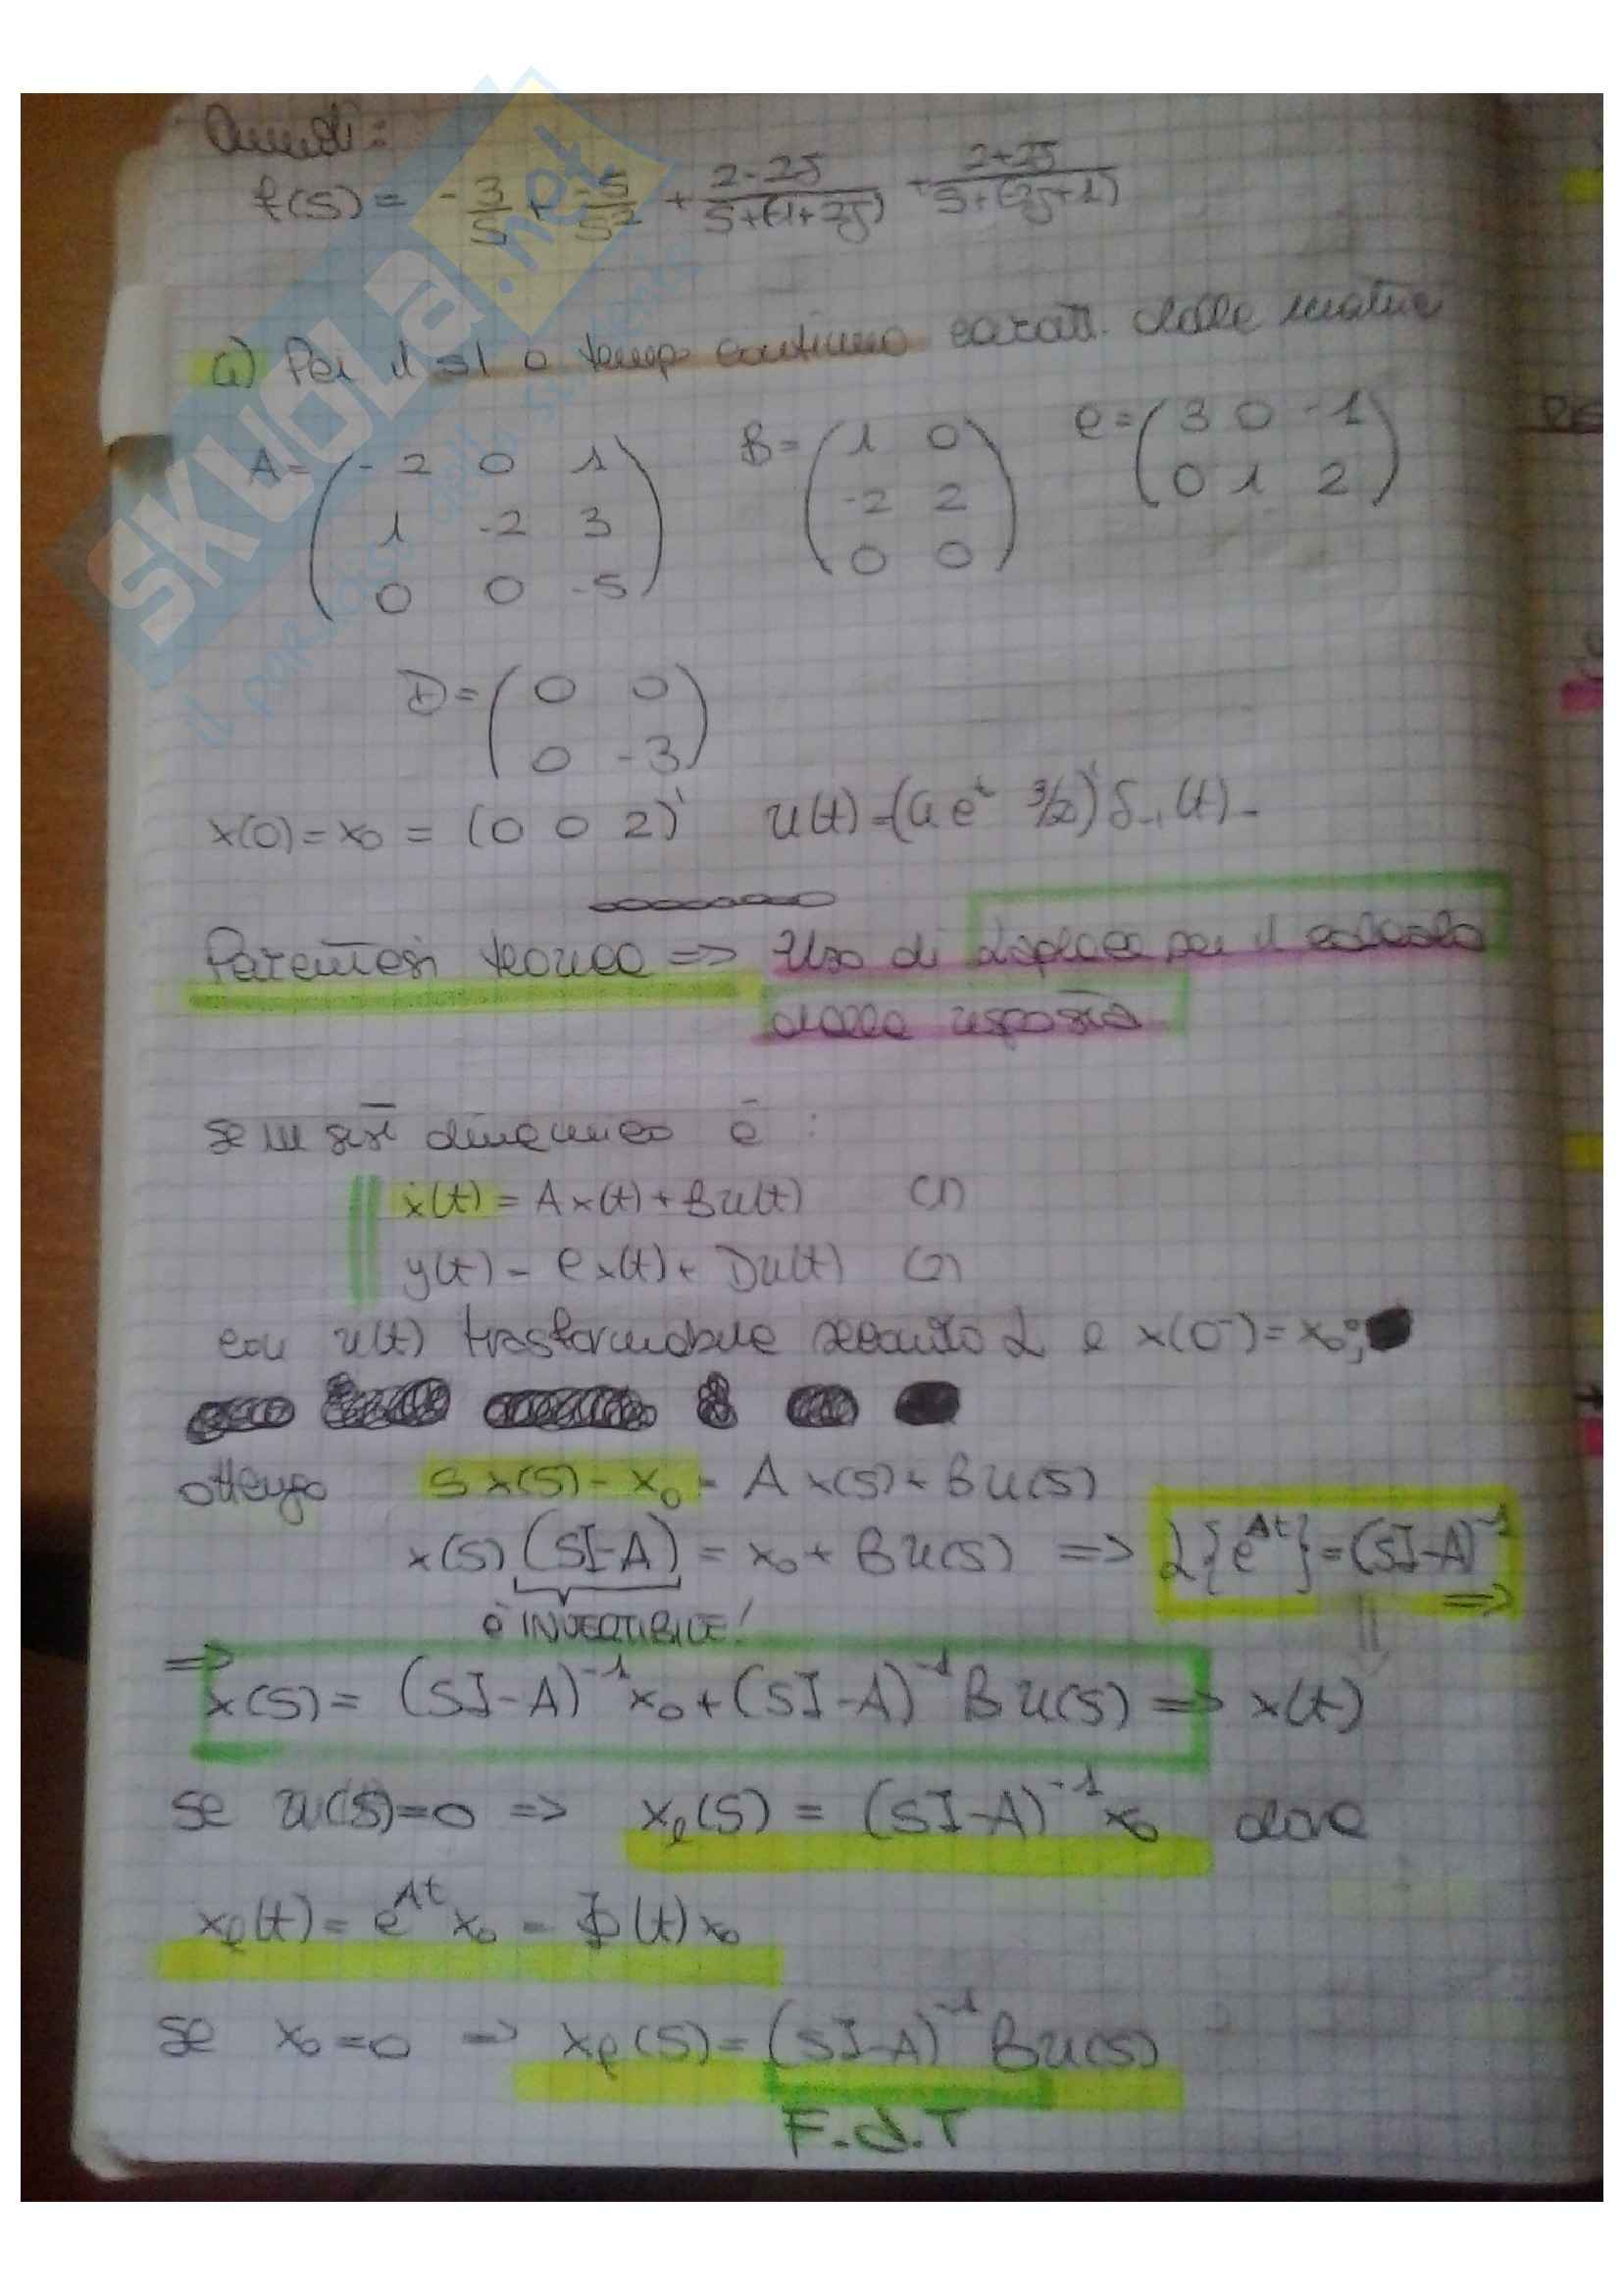 Quindi:
f(s) = - 3/s + -5/s² + 2-2j/s+(-1+2j) + 2+2j/s+(-2j+1)
a) Per il SI a tempo continuo caratt. dalle matrici
A = ( -2 0 1
1 -2 3
0 0 -5 )
B = ( 1 0
-2 2
0 0 )
C = ( 3 0 -1
0 1 2 )
D = ( 0 0
0 -3 )
x(0) = x₀ = (0 0 2)' u(t) = (4e^t 3/2)' δ₋₁(t) -
Parentesi teorica => Uso di Laplace per il calcolo
della risposta
se un sist dinamico è :
ẋ(t) = Ax(t) + Bu(t) (1)
y(t) = Cx(t) + Du(t) (2)
con u(t) trasformabile secondo L e x(0⁻) = x₀;
ottengo sx(s) - x₀ = Ax(s) + Bu(s)
x(s) (sI-A) = x₀ + Bu(s) => L{e^At} = (sI-A)⁻¹ =>
è INVERTIBILE!
=> x(s) = (sI-A)⁻¹x₀ + (sI-A)⁻¹Bu(s) => x(t)
se u(s)=0 => xℓ(s) = (sI-A)⁻¹x₀ dove
xℓ(t) = e^At x₀ = Φ(t)x₀
se x₀=0 => xf(s) = (sI-A)⁻¹Bu(s)
F.d.T
SKUOLA.net
il paradiso dello studente